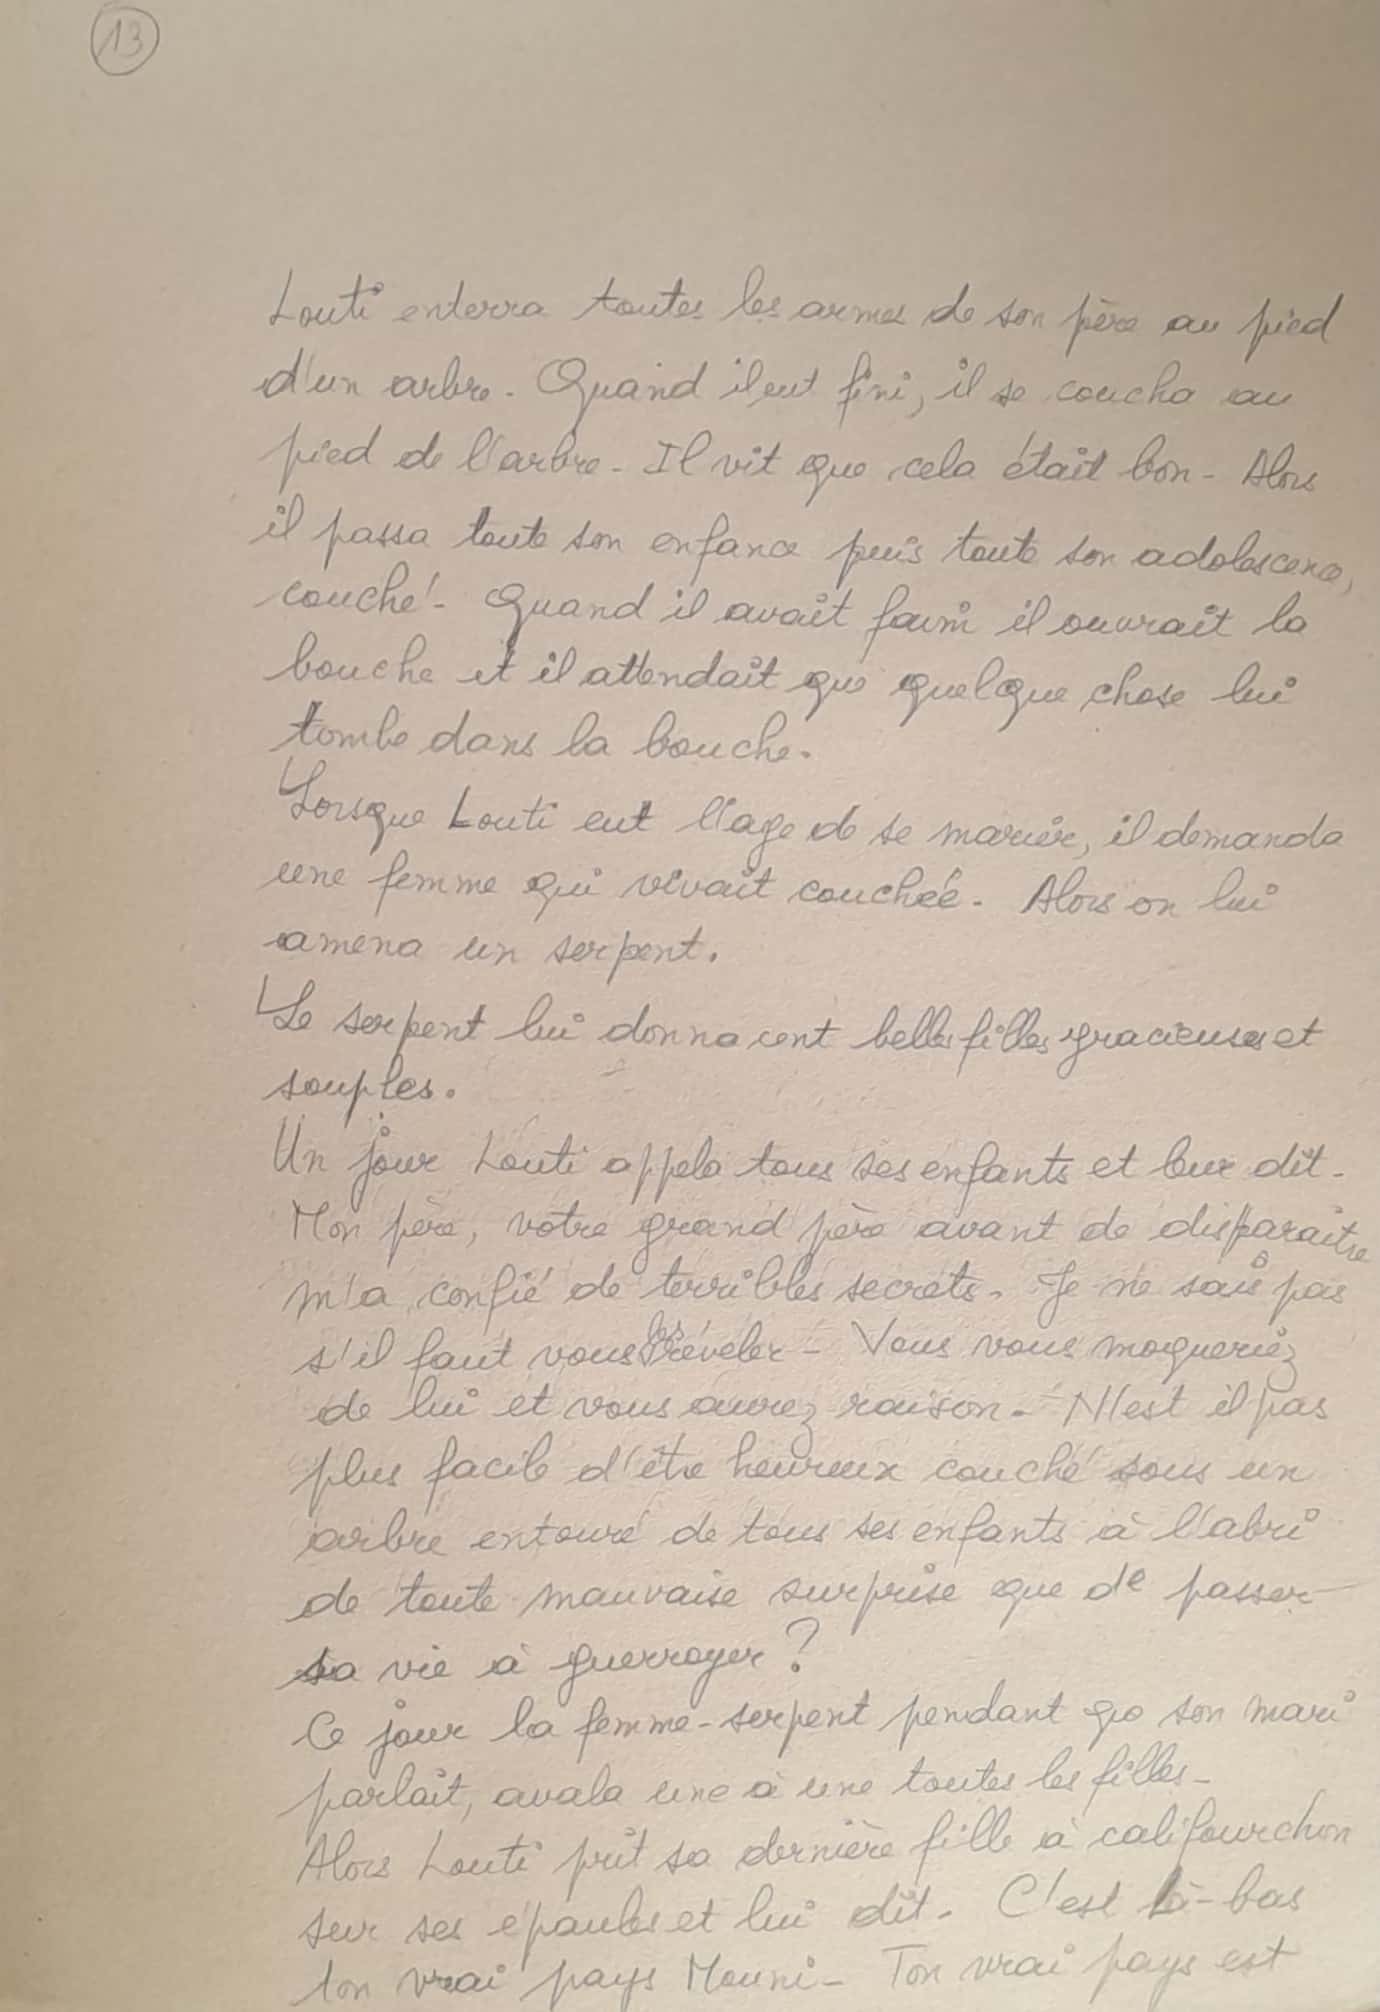 13
Louti enterra toutes les armes de son père au pied
d'un arbre. Quand il eut fini, il se coucha au
pied de l'arbre - Il vit que cela était bon - Alors
il passa toute son enfance puis toute son adolescence,
couché - Quand il avait faim il ouvrait la
bouche et il attendait que quelque chose lui
tombe dans la bouche.
Lorsque Louti eut l'age de se marier, il demanda
une femme qui vivait couchée - Alors on lui
amena un serpent.
Le serpent lui donna cent belles filles gracieuses et
souples.
Un jour Louti appela tous ses enfants et leur dit -
Mon père, votre grand père avant de disparaître
m'a confié de terribles secrets - Je ne sais pas
s'il faut vous les révéler - Vous vous moqueriez
de lui et vous aurez raison - N'est il pas
plus facile d'être heureux couché sous un
arbre entouré de tous ses enfants à l'abri
de toute mauvaise surprise que de passer
sa vie à guerroyer ?
Ce jour la femme-serpent pendant que son mari
parlait, avala une à une toutes les filles -
Alors Louti prit sa dernière fille à califourchon
sur ses épaules et lui dit - C'est là-bas
ton vrai pays Mouni - Ton vrai pays est